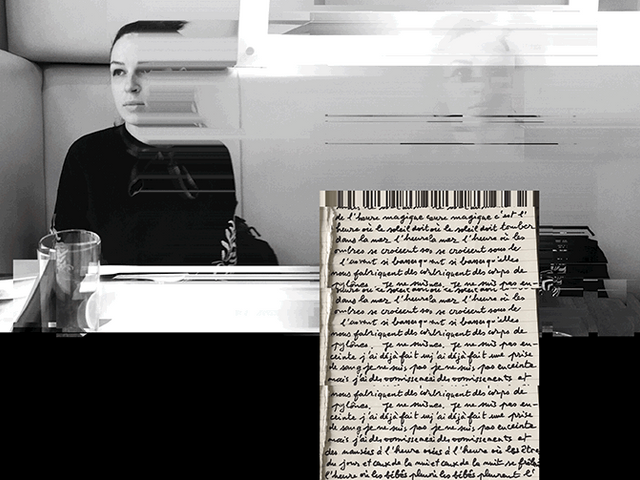 de l'heure magique heure magique c'est l'
heure où le soleil doit où le soleil doit tomber
dans la mer l'heure la mer l'heure où les
ombres se croisent sos se croisent sous le
l'avant si basse qu'elles
nous fabriquent des fabriquent des corps de
pylônes. Je ne suis pas en-
dans la mer l'heure la mer l'heure où les
ombres se croisent sos se croisent sous le
l'avant si basse qu'elles
nous fabriquent des fabriquent des corps de
pylônes. Je ne suis pas en-
ceinte j'ai déjà fait uj'ai déjà fait une prise
de sang je ne suis pas je ne suis pas enceinte
mais j'ai des vomissements des vomissements et
nous fabriquent des fabriquent des corps de
pylônes. Je ne suis pas en-
ceinte j'ai déjà fait uj'ai déjà fait une prise
de sang je ne suis pas je ne suis pas enceinte
mais j'ai des vomissements des vomissements et
des nausées à l'heure où les êtres
du jour et ceux de la nuit et ceux de la nuit se frôlent
l'heure où les bébés pleurent l'